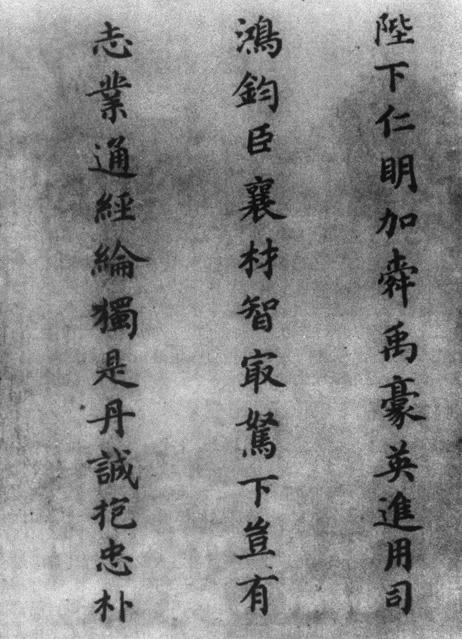 陛下仁明加舜禹豪英進用司
鴻鈞臣襄材智㝡駑下豈有
志業通經綸獨是丹誠抱忠朴